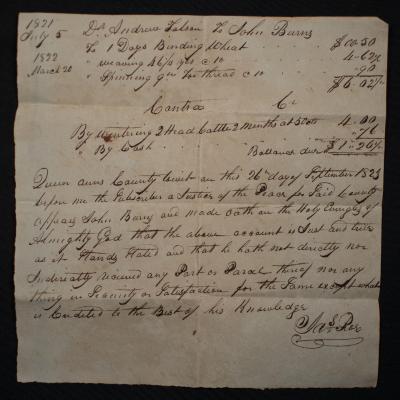 1821
July 5 Dr. Andrew Tolson To John Burns
To 1 Days Binding Wheat $00.50
1822 " weaving 46¼ yds @ 10 4.62½
March 20 " Spinning 9 for thread @ 10 .90
$6.02½
Contra Cr
By Wintering 2 Head Cattle 2 months at 50cts 4.00
" By Cash .76
Ballance due $1.26½
Queen anns County towit on this 26th day of September 1823
before me the Subscriber a Justice of the Peace for Said County
appears John Burns and made Oath on the Holy Evangels of
Almighty God that the above account is Just and true
as it Stands Stated and that he hath not directly nor
Indirectly received any Part or Parcel thereof nor any
thing in Security or Satisfaction for the Same except what
is Credited to the Best of his Knowledge
Jas. Roe